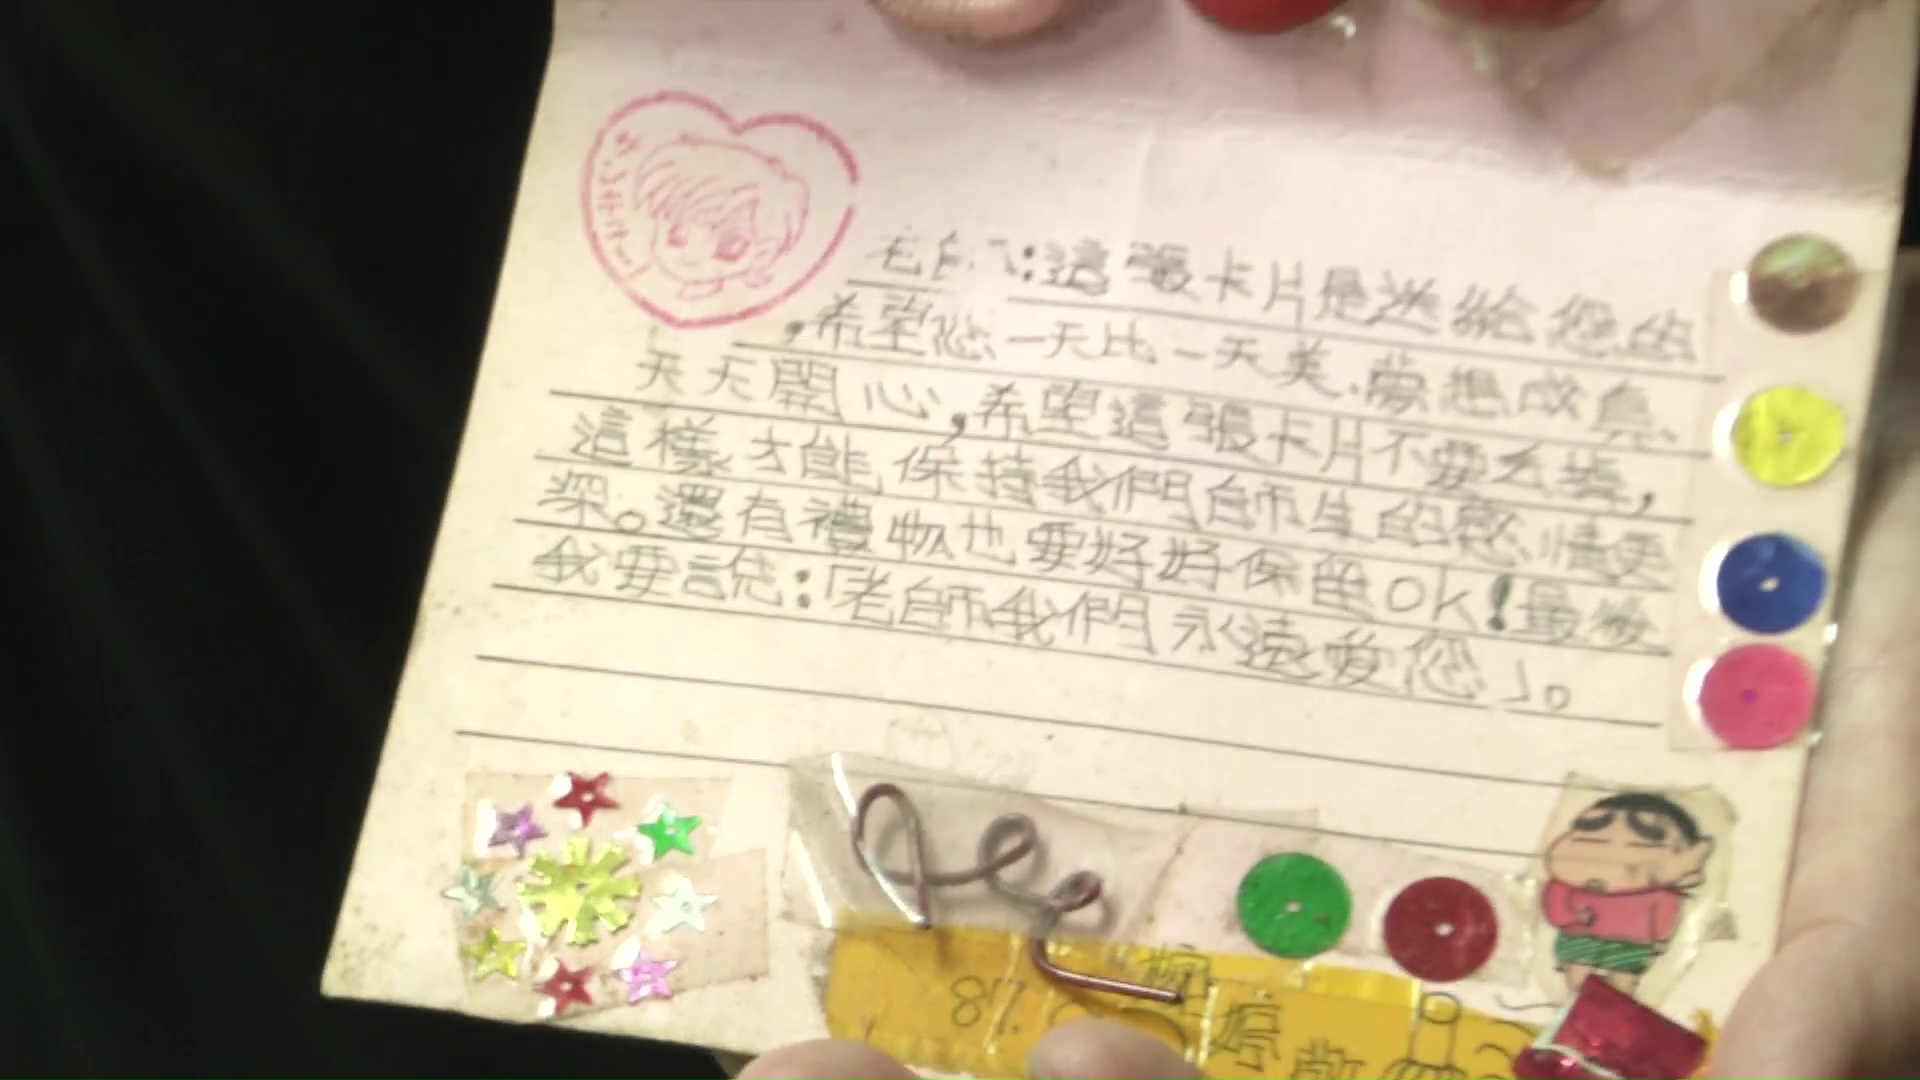 老師:這張卡片是送給您的
,希望您一天比一天美、夢想成真、
天天開心,希望這張卡片不要丟棄,
這樣才能保持我們師生的感情更
深。還有禮物也要好好保留OK!最後
我要說:「老師我們永遠愛您」。
87.
婷
敬